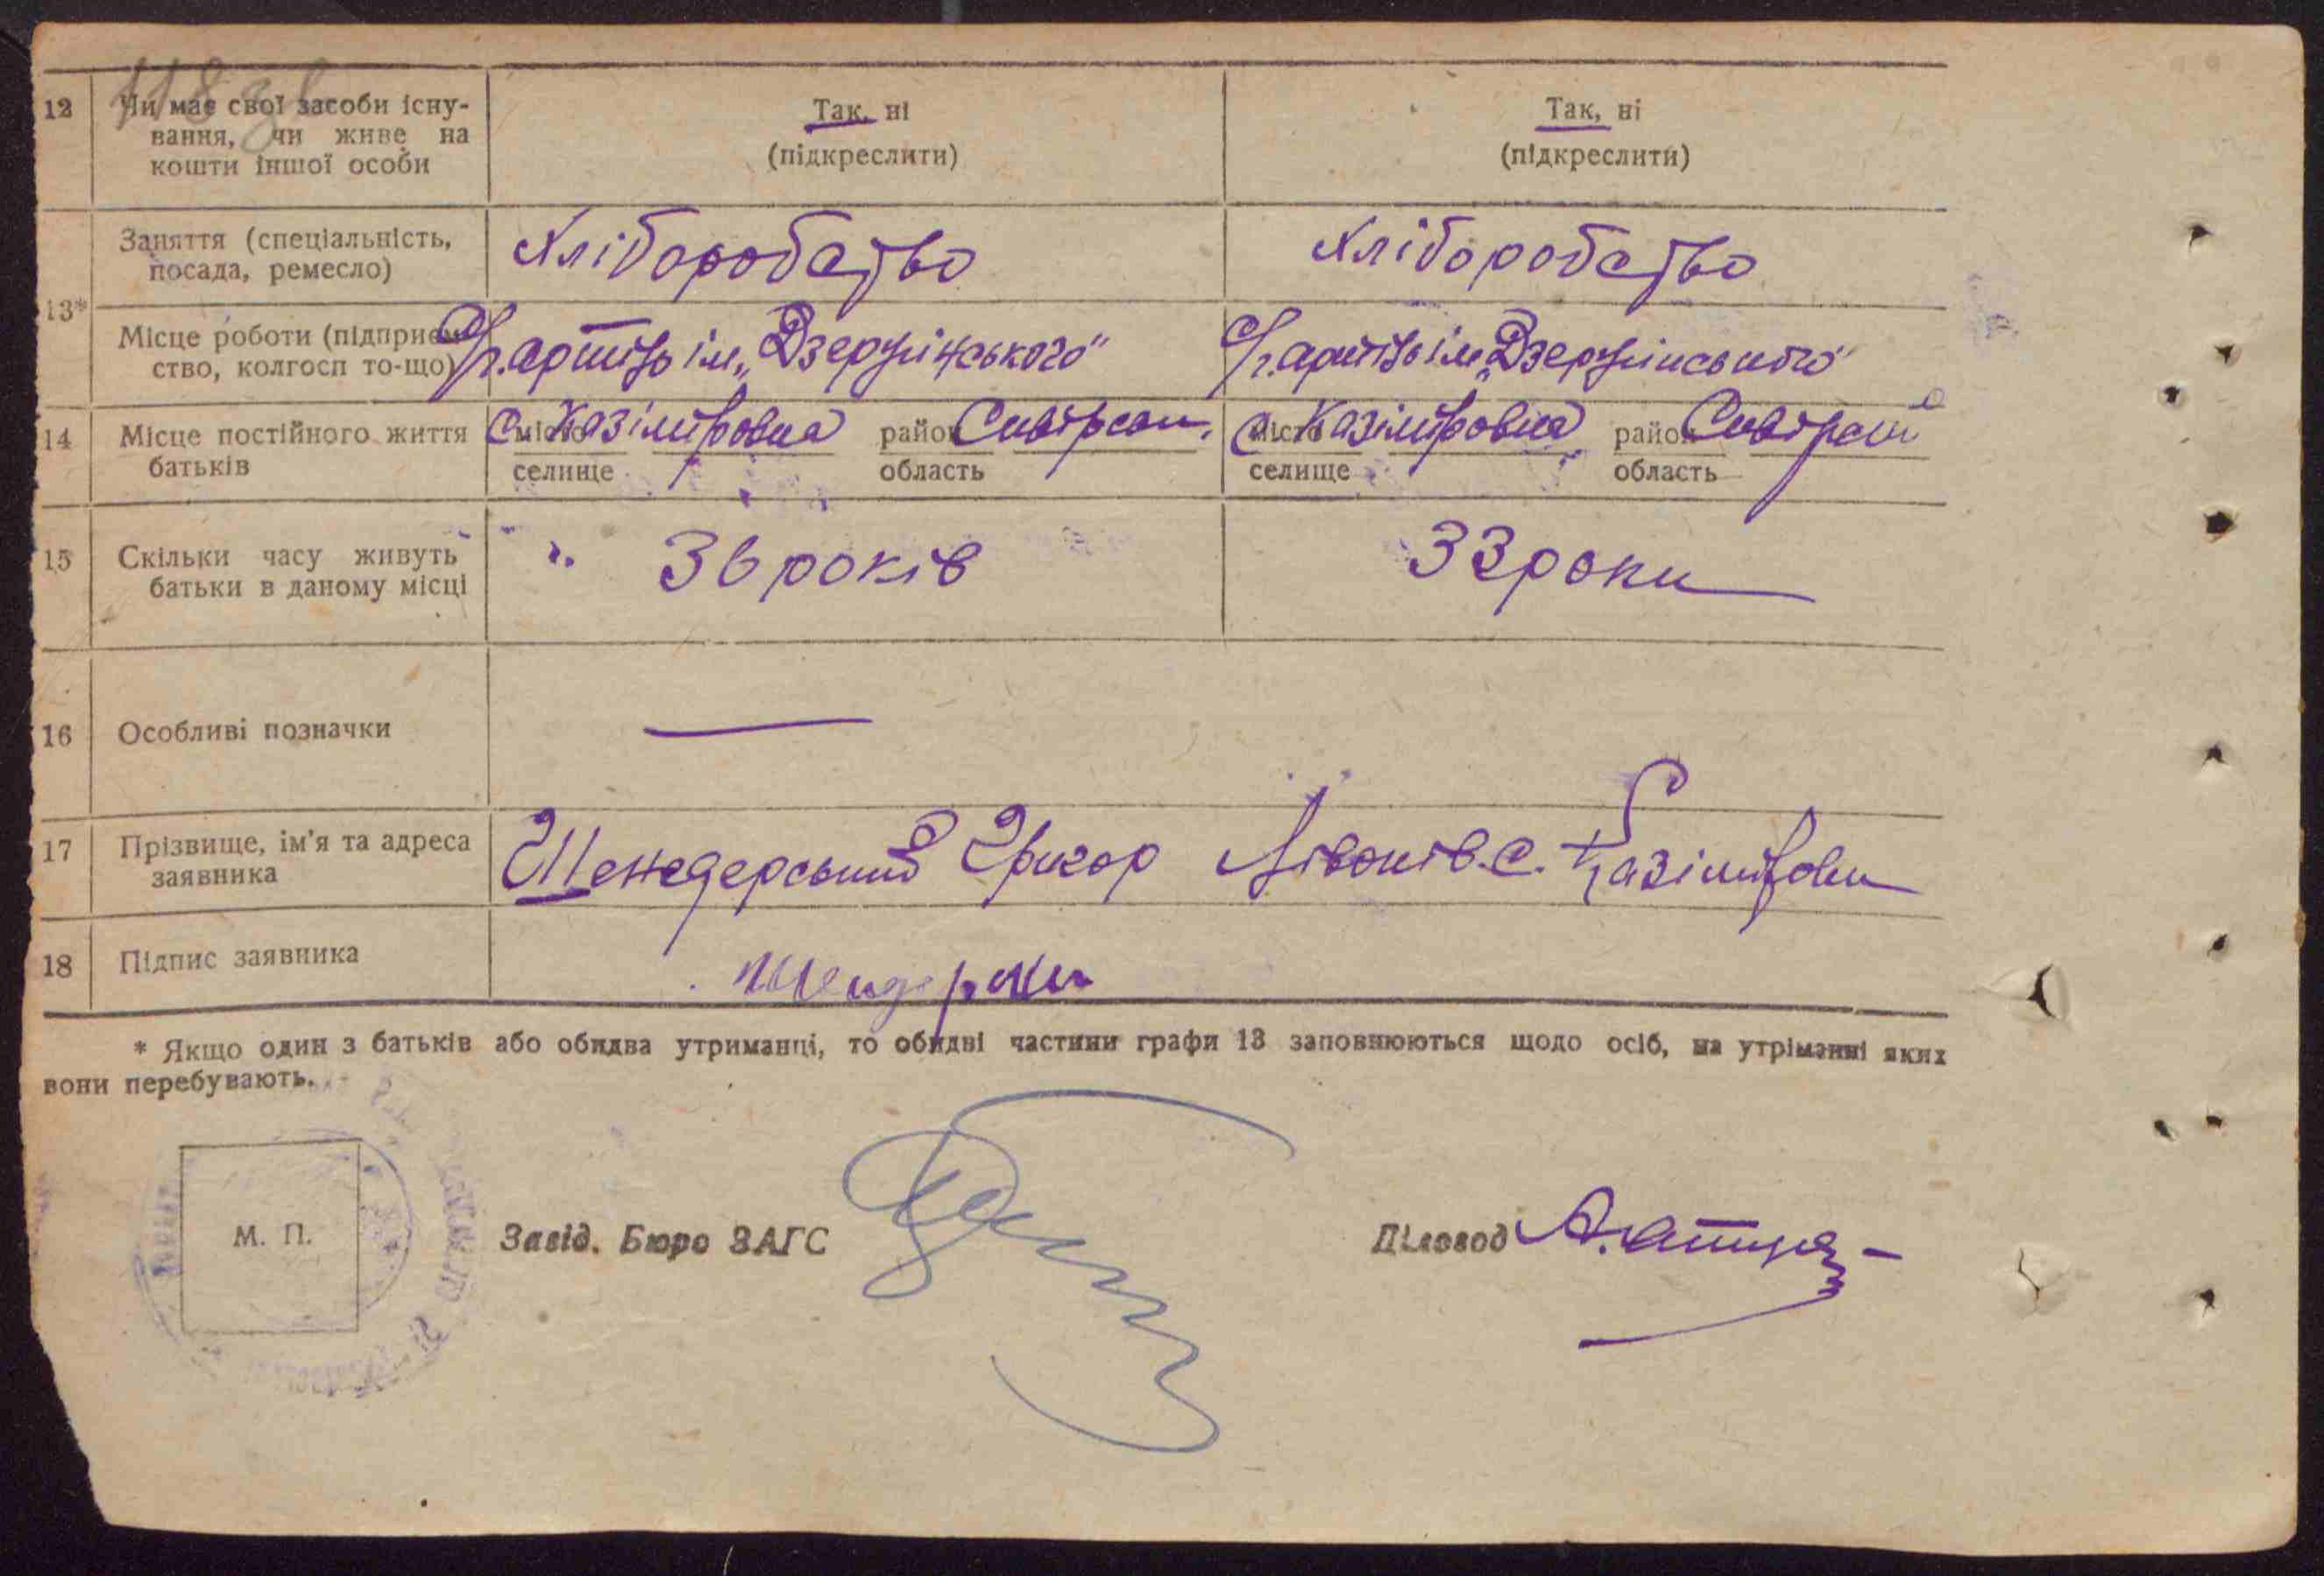 12 Чи має свої засоби існу- Так, ні Так, ні
вання, чи живе на (підкреслити) (підкреслити)
кошти іншої особи
13* Заняття (спеціальність, Хліборобство Хліборобство
посада, ремесло)
Місце роботи (підприєм- артіль ім. „Дзержінського" артіль ім. „Дзержінського"
ство, колгосп то-що)
14 Місце постійного життя місто с. Казімировка район місто с. Казімировка район
батьків селище область селище область
15 Скільки часу живуть 36 років 33 роки
батьки в даному місці
16 Особливі позначки —
17 Прізвище, ім'я та адреса Шендерський Григор с. Казімировки
заявника
18 Підпис заявника
* Якщо один з батьків або обидва утриманці, то обидві частини графи 13 заповнюються щодо осіб, на утріманні яких
вони перебувають.
М. П. Завід. Бюро ЗАГС Діловод